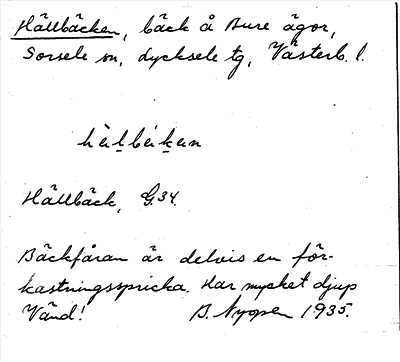 Hällbäcken, bäck å Bure ägor,
Sorsele sn, Lycksele tg, Västerb. l.
hä̀lbékan
Hällbäck, G34.
Bäckfåran är delvis en för-
kastningsspricka. Har mycket djup
Vänd! B. Nyopen 1935.